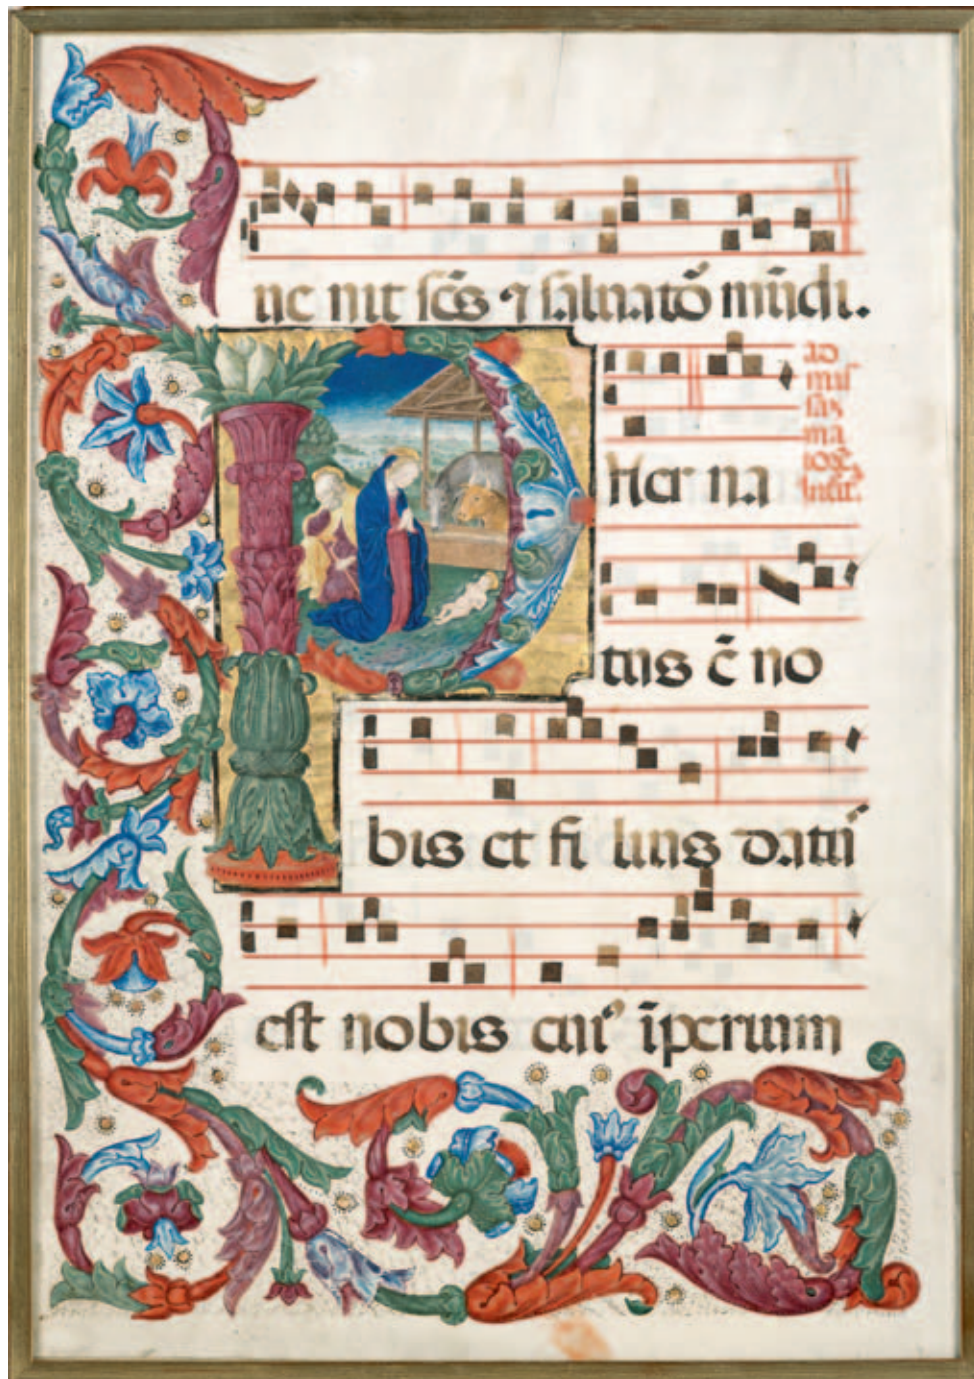 ue nit sc̄s ⁊ saluatō mūdi.
ad
mis
sas
ma
Puer na
tus ē no
bis et fi lius datū
est nobis cuiꝰ īperium